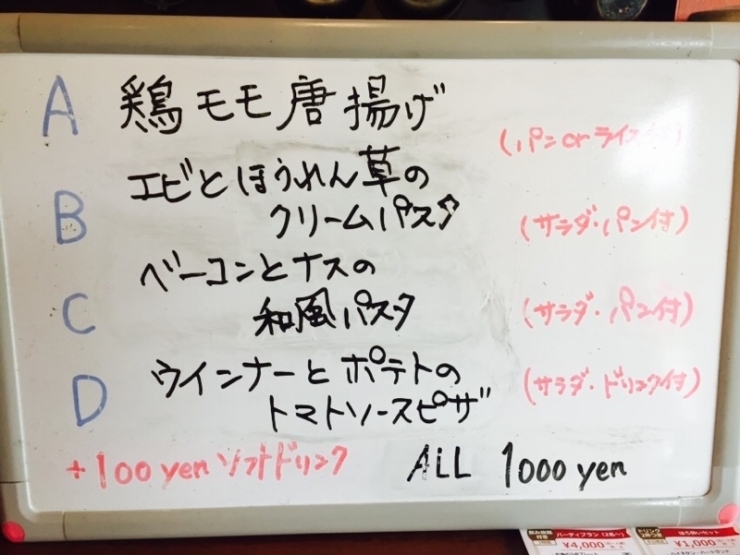 A 鶏モモ唐揚げ
(パン or ライス
B エビとほうれん草の
クリームパスタ (サラダ・パン付)
C ベーコンとナスの
和風パスタ (サラダ・パン付)
D ウインナーとポテトの
トマトソースピザ (サラダ・ドリンク付)
+100yen ソフトドリンク ALL 1000 yen
パーティプラン
¥4,000
¥1,000